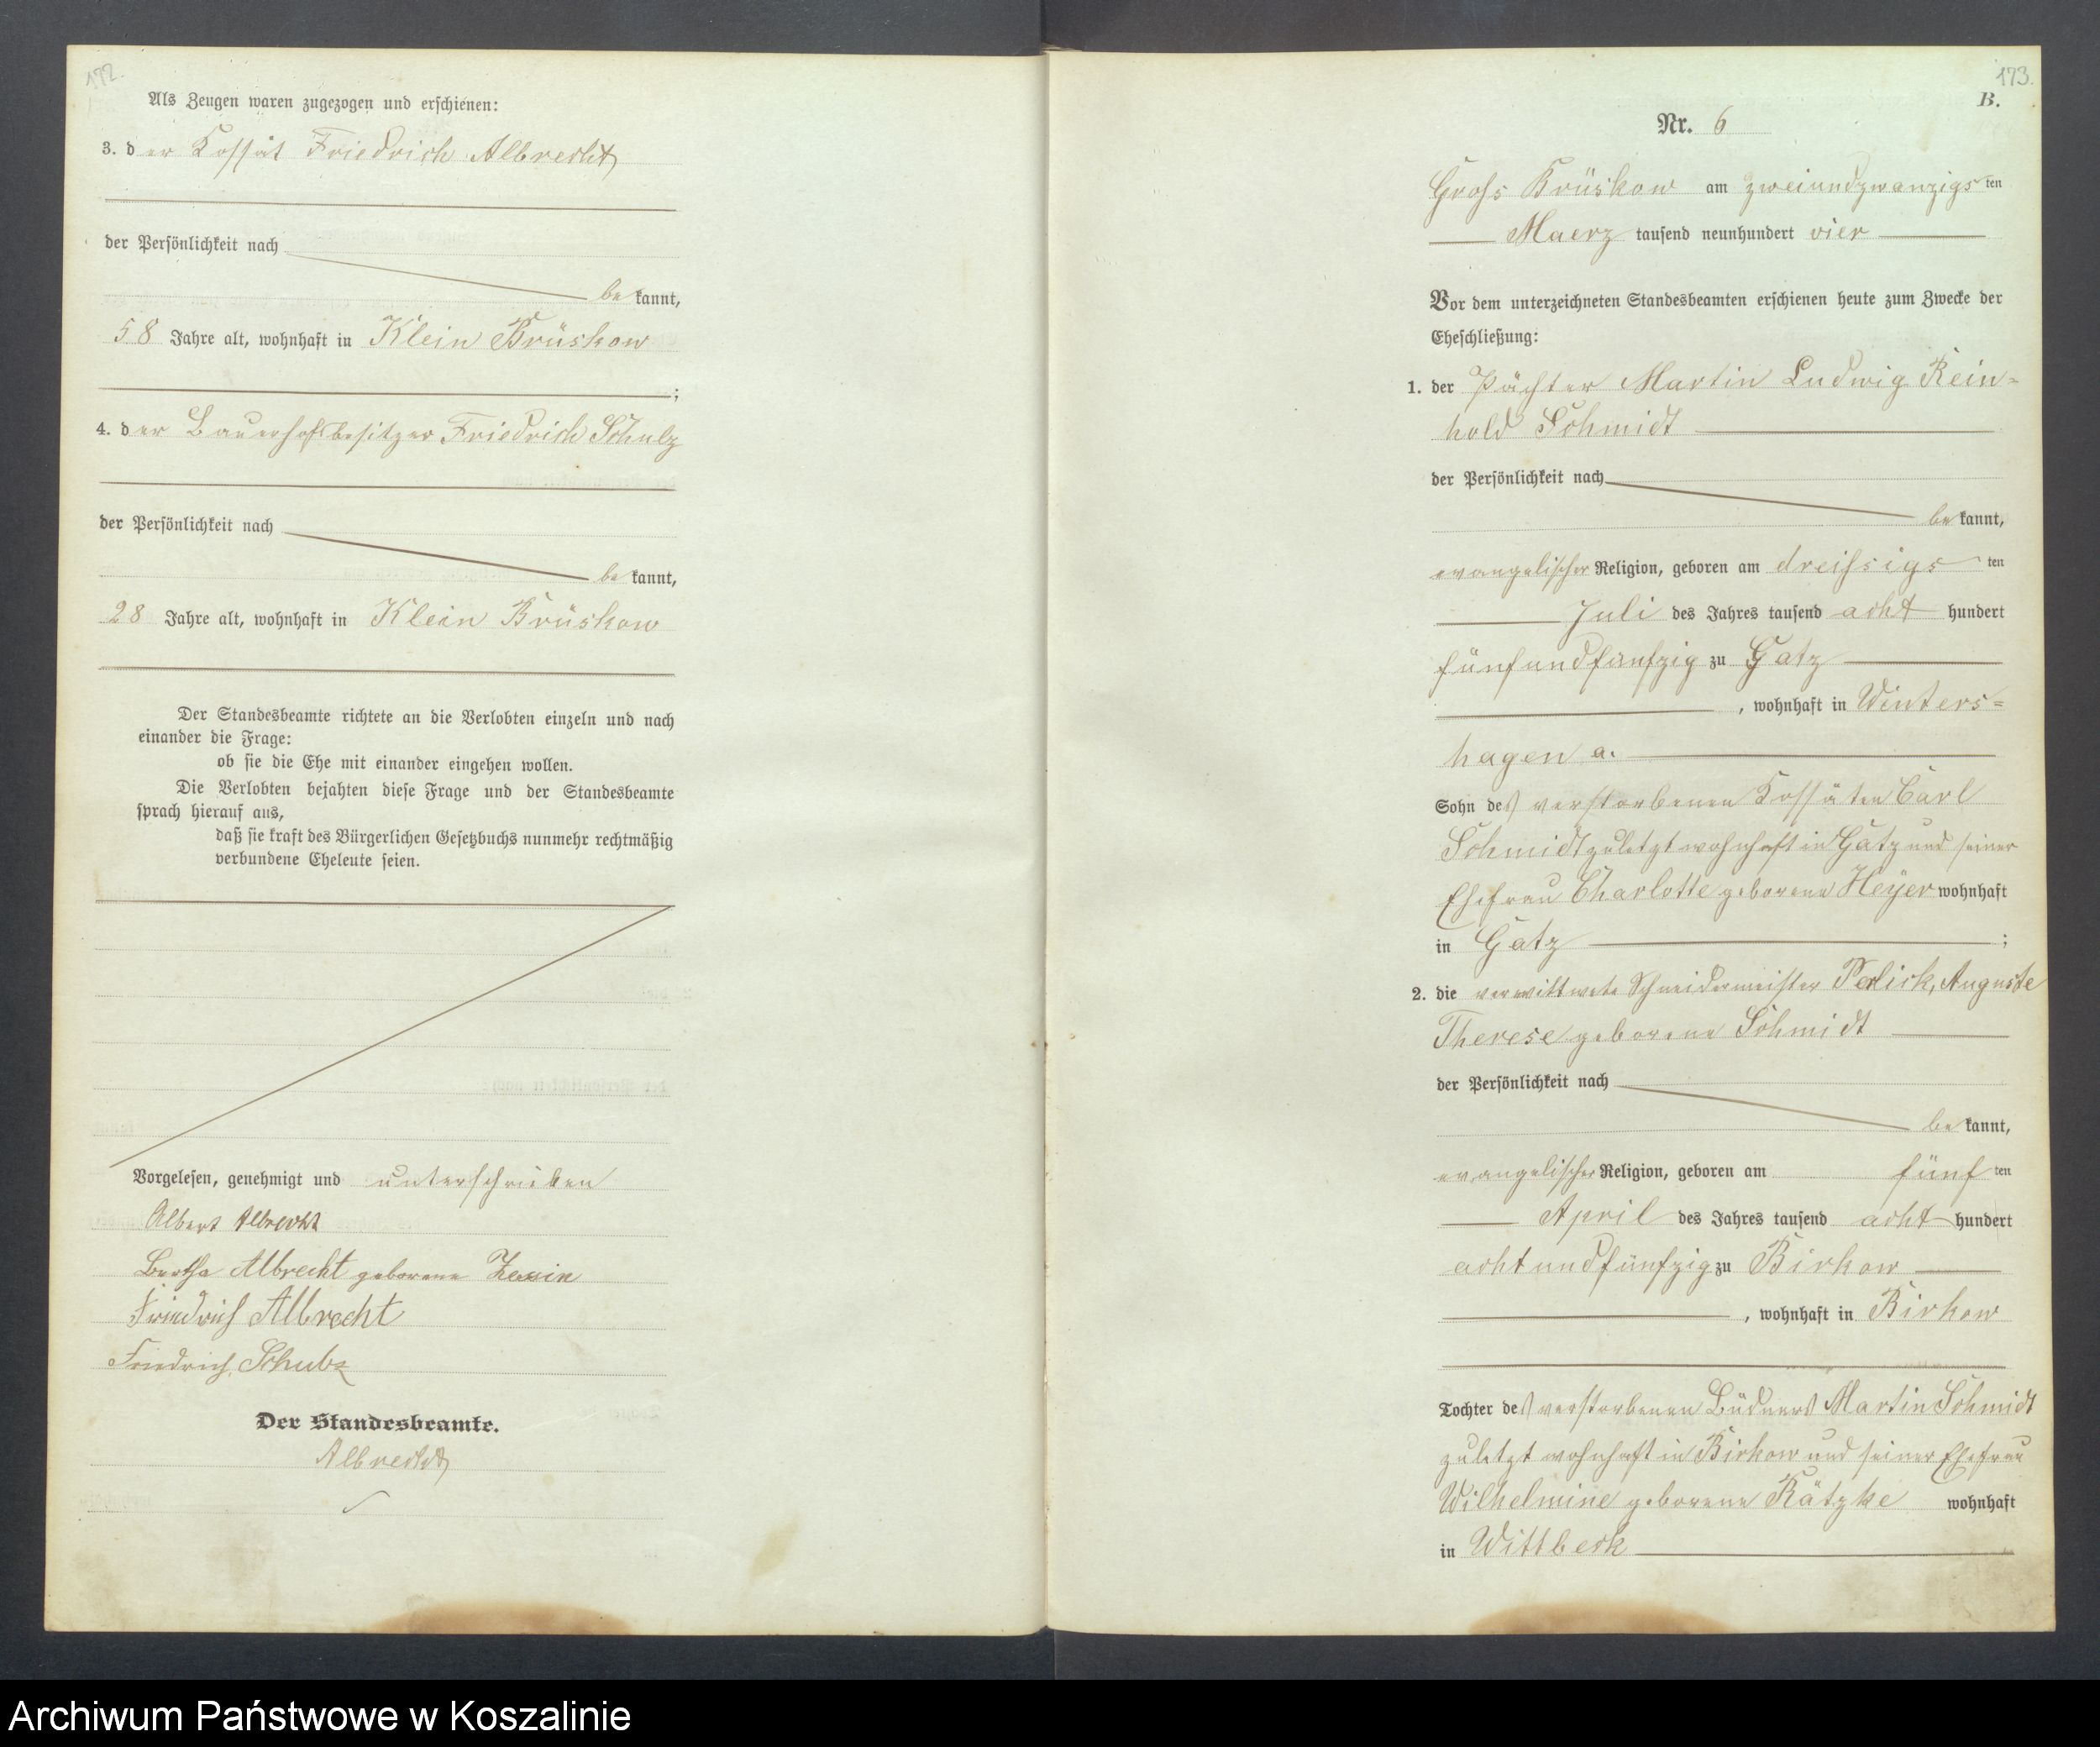 172.
Als Zeugen waren zugezogen und erschienen:
3. der Kossät Friedrich Albrecht
der Persönlichkeit nach
bekannt,
58 Jahre alt, wohnhaft in Klein Brüskow
;
4. der Bauerhofsbesitzer Friedrich Schulz
der Persönlichkeit nach
bekannt,
28 Jahre alt, wohnhaft in Klein Brüskow
Der Standesbeamte richtete an die Verlobten einzeln und nach
einander die Frage:
ob sie die Ehe mit einander eingehen wollen.
Die Verlobten bejahten diese Frage und der Standesbeamte
sprach hierauf aus,
daß sie kraft des Bürgerlichen Gesetzbuchs nunmehr rechtmäßig
verbundene Eheleute seien.
Vorgelesen, genehmigt und unterschrieben
Albert Albrecht
Bertha Albrecht geborene
Friedrich Albrecht
Friedrich Schulz
Der Standesbeamte.
Albrecht
173.
B.
Nr. 6
Gross Brüskow am zweiundzwanzigsten
Maerz tausend neunhundert vier
Vor dem unterzeichneten Standesbeamten erschienen heute zum Zwecke der
Eheschließung:
1. der Pächter Martin Ludwig Rein=
hold Schmidt
der Persönlichkeit nach
bekannt,
evangelischer Religion, geboren am dreissigsten
Juli des Jahres tausend achthundert
fünfundfünfzig zu Gatz
, wohnhaft in Winters=
hagen a.
Sohn des verstorbenen Kossäten Carl
Schmidt zuletzt wohnhaft in Gatz und seiner
Ehefrau Charlotte geborene Heyer wohnhaft
in Gatz ;
2. die verwittwete Schneidermeister Perlick, Auguste
Therese geborene Schmidt
der Persönlichkeit nach
bekannt,
evangelischer Religion, geboren am fünften
April des Jahres tausend achthundert
achtundfünfzig zu Birkow
, wohnhaft in Birkow
Tochter des verstorbenen Büdners Martin Schmidt
zuletzt wohnhaft in Birkow und seiner Ehefrau
Wilhelmine geborene Rätzke wohnhaft
in Wittbeck
Archiwum Państwowe w Koszalinie